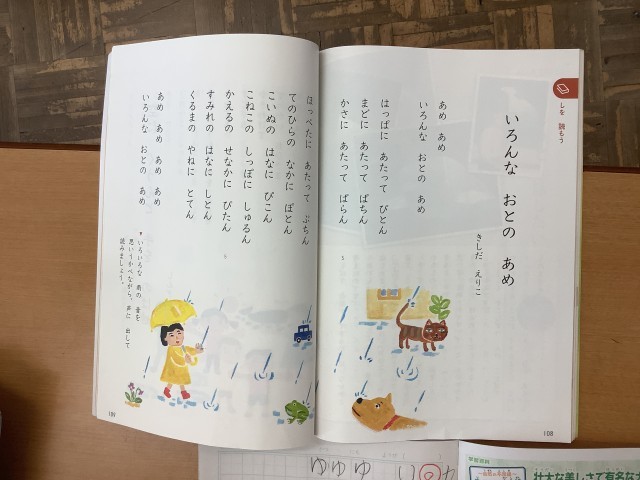 しを 読もう
いろんな おとの あめ
きしだ えりこ
あめ あめ
いろんな おとの あめ
はっぱに あたって ぴとん
まどに あたって ぱちん
かさに あたって ぱらん
108
ほっぺたに あたって ぷちん
てのひらの なかに ぽとん
こいぬの はなに ぴこん
こねこの しっぽに しゅるん
かえるの せなかに ぴたん
すみれの はなに しとん
くるまの やねに とてん
あめ あめ あめ あめ
いろんな おとの あめ
いろいろな 雨の 音を
思いうかべながら、声に 出して
読みましょう。
109
ゆゆゆ
い
壮大な美しさで有名な